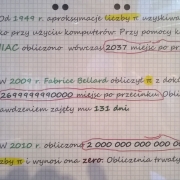 Od 1949 r. aproksymacje liczby π uzyskiwa
ko przy użyciu komputerów Przy pomocy k
IAC obliczono wówczas 2037 miejsc po prz
W 2009 r. Fabrice Bellard obliczył π z dokł
2699999990000 miejsc po przecinku Obli
awdzeniem zajęły mu 131 dni
W 2010 r. obliczono 2 000 000 000 000 00
zby π i wynosi ona zero: Obliczenia trwały